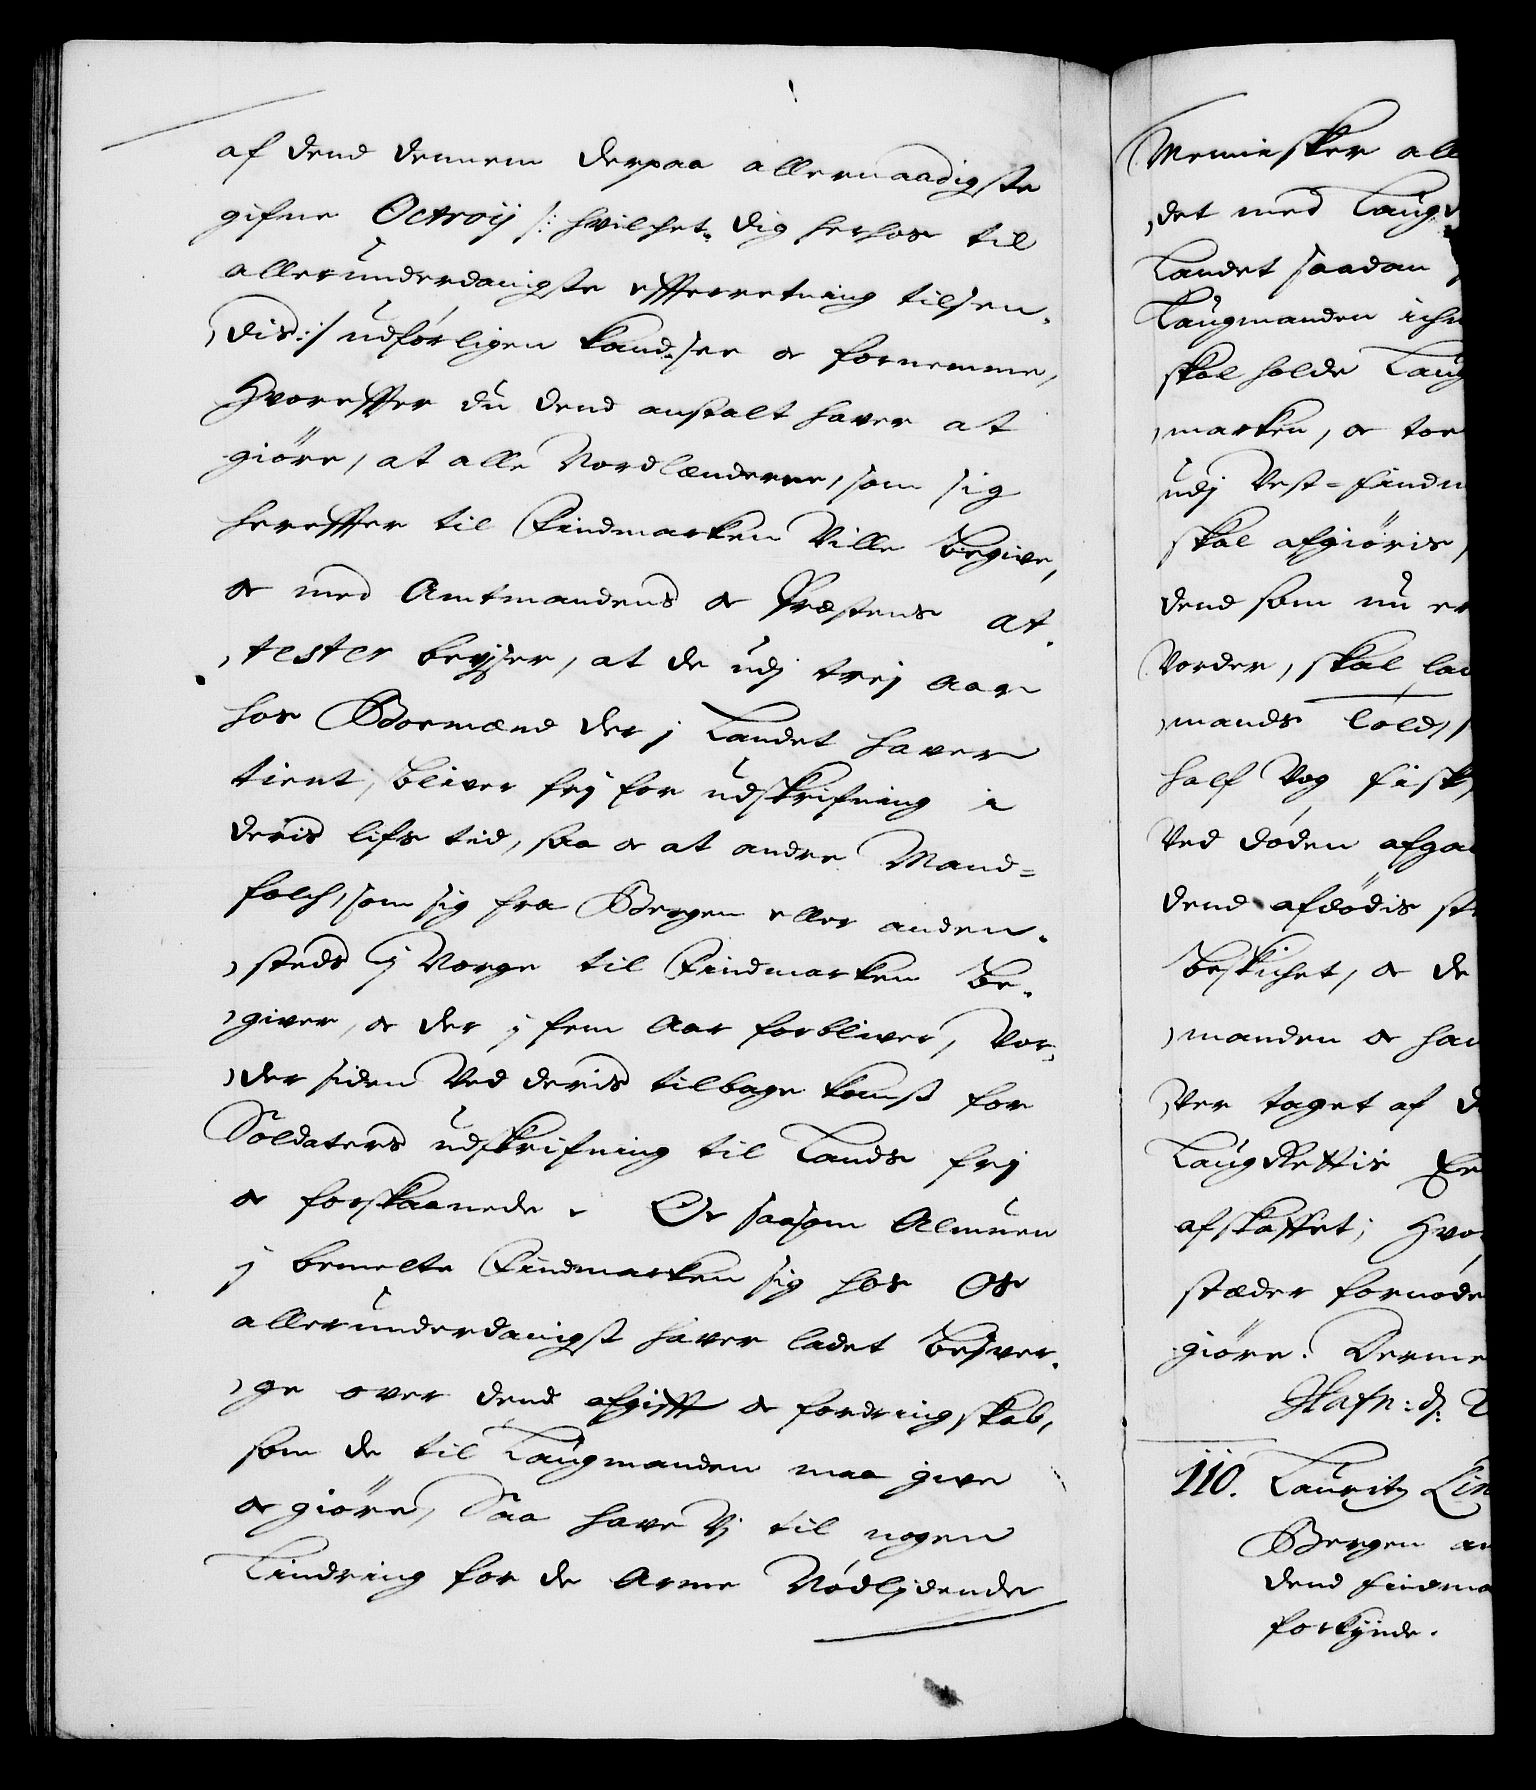 af dend dennem derpaa allernaadigste
gifne Octroij /: hvilchet dig herhos til
allerunderdanigste effterretning tilsen-
dis :/ udførligen kand see oc fornemme,
Hvoreffter du dend anstalt haver at
giöre, at alle Nordlænderne, som sig
hereffter til Findmarken Ville begive,
oc med Amtmandens oc Præstens at-
tester bevjser, at de udj trej Aar
hos Boemænd der j Landet haver
tient, bliver frj for udskrifning i
deris lifs tid, saa oc at andre Mand=
folch, som sig fra Bergen eller anden-
steds j Norge til Findmarken be-
giver, oc der j fem Aar forbliver, vor-
der siden ved deris tilbage komst for
Soldaters udskrifning til Lands frj
oc forskaanede. Oc saasom Almuen
j bemelte Findmarken sig hos Os
allerunderdanigst haver ladet besver-
ge over dend afgifft oc fordringskab,
som de til Laugmanden maa give
oc giöre, Saa have Vj til nogen
Lindring for de Arme Nödljdende
Menniesker all
det med Laug
Landet saadan
Laugmanden iche
skal holde Laug
marken, oc to
udj Vest=Findm
skal afgiöris,
dend som nu er
Vorder, skal
mands Told,
half Vog fisk,
Ved döden afga
dend afdödis st
beskichet, oc de
manden oc ha
ver taget af d
LaugRettis
afskaffet; Hvo
stæder fornøde
giöre. Derme
Hafn: d:
110. Lauritz Lin
Bergen an
dend Findma
forkynde.